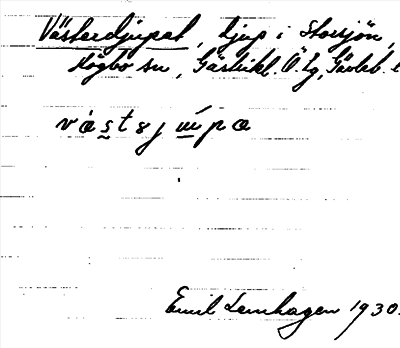 Västerdjupet, djup i Storsjön,
Högbo sn, Gästrikl. Ö. tg, Gävleb. l
västsjupa
Emil Lenhagen 1930.